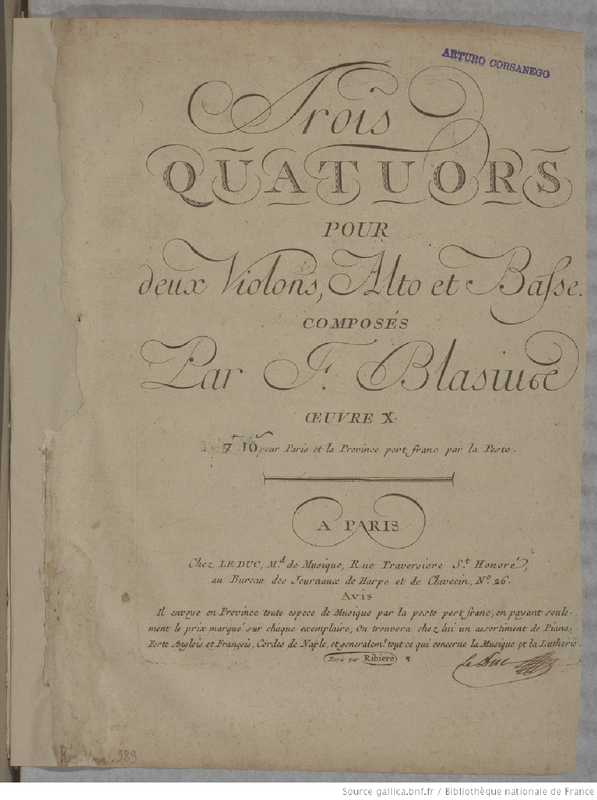 ARTURO CORSANEGO
Trois
QUATUORS
POUR
deux Violons, Alto et Basse.
COMPOSÉS
Par F. Blasius
ŒUVRE X.
7tt 10s pour Paris et la Province port franc par la Poste.
A PARIS
Chez LE DUC, Md. de Musique, Rue Traversiere St. Honoré,
au Bureau des Journaux de Harpe et de Clavecin, No. 26.
Avis
Il envoye en Province toute espece de Musique par la poste port franc, en payant seule-
ment le prix marqué sur chaque exemplaire, On trouvera chez lui un assortiment de Piano-
Forte Anglois et François, Cordes de Naple, et generalemt. tout ce qui concerne la Musique et la Lutherie
Ecrit par Ribiere
le Duc
Rés. Vma. 389
Source gallica.bnf.fr / Bibliothèque nationale de France